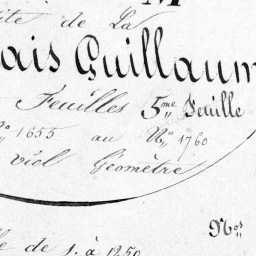 M
ite de La
ais Guillaum
Feuilles 5me Feuille
No 1655 au No 1760
viol Géomètre
Nos
lle de 1. à 1250